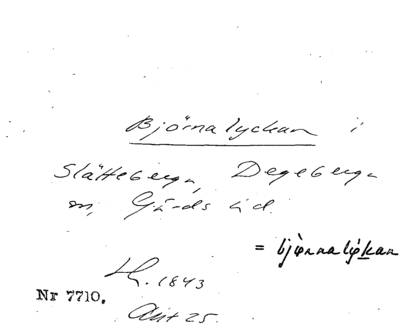 Björnalyckan i
Slätteberga, Degeberga
sn, Gärds hd.
= björnalýkan
H. 1843
Nr 7710.
Akt 25.